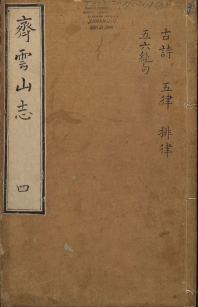 齊雲山志 四
古詩 五律 排律
五六絶句